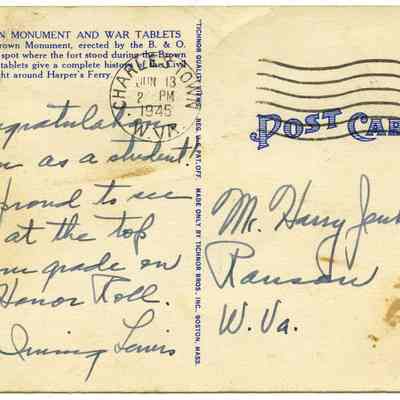 N MONUMENT AND WAR TABLETS
rown Monument, erected by the B. & O.
spot where the fort stood during the Brown
tablets give a complete history of the Civil
ght around Harper's Ferry.
CHARLES TOWN
JUN 13
2 PM
1945
W.VA.
ngratulations
n as a student!
proud to see
at the top
m grade on
Honor Roll.
Irving Lewis
"TICHNOR QUALITY VIEWS," REG. U.S. PAT. OFF. MADE ONLY BY TICHNOR BROS., INC., BOSTON, MASS.
POST CAR
Mr. Harry Jenk
Ranson
W. Va.